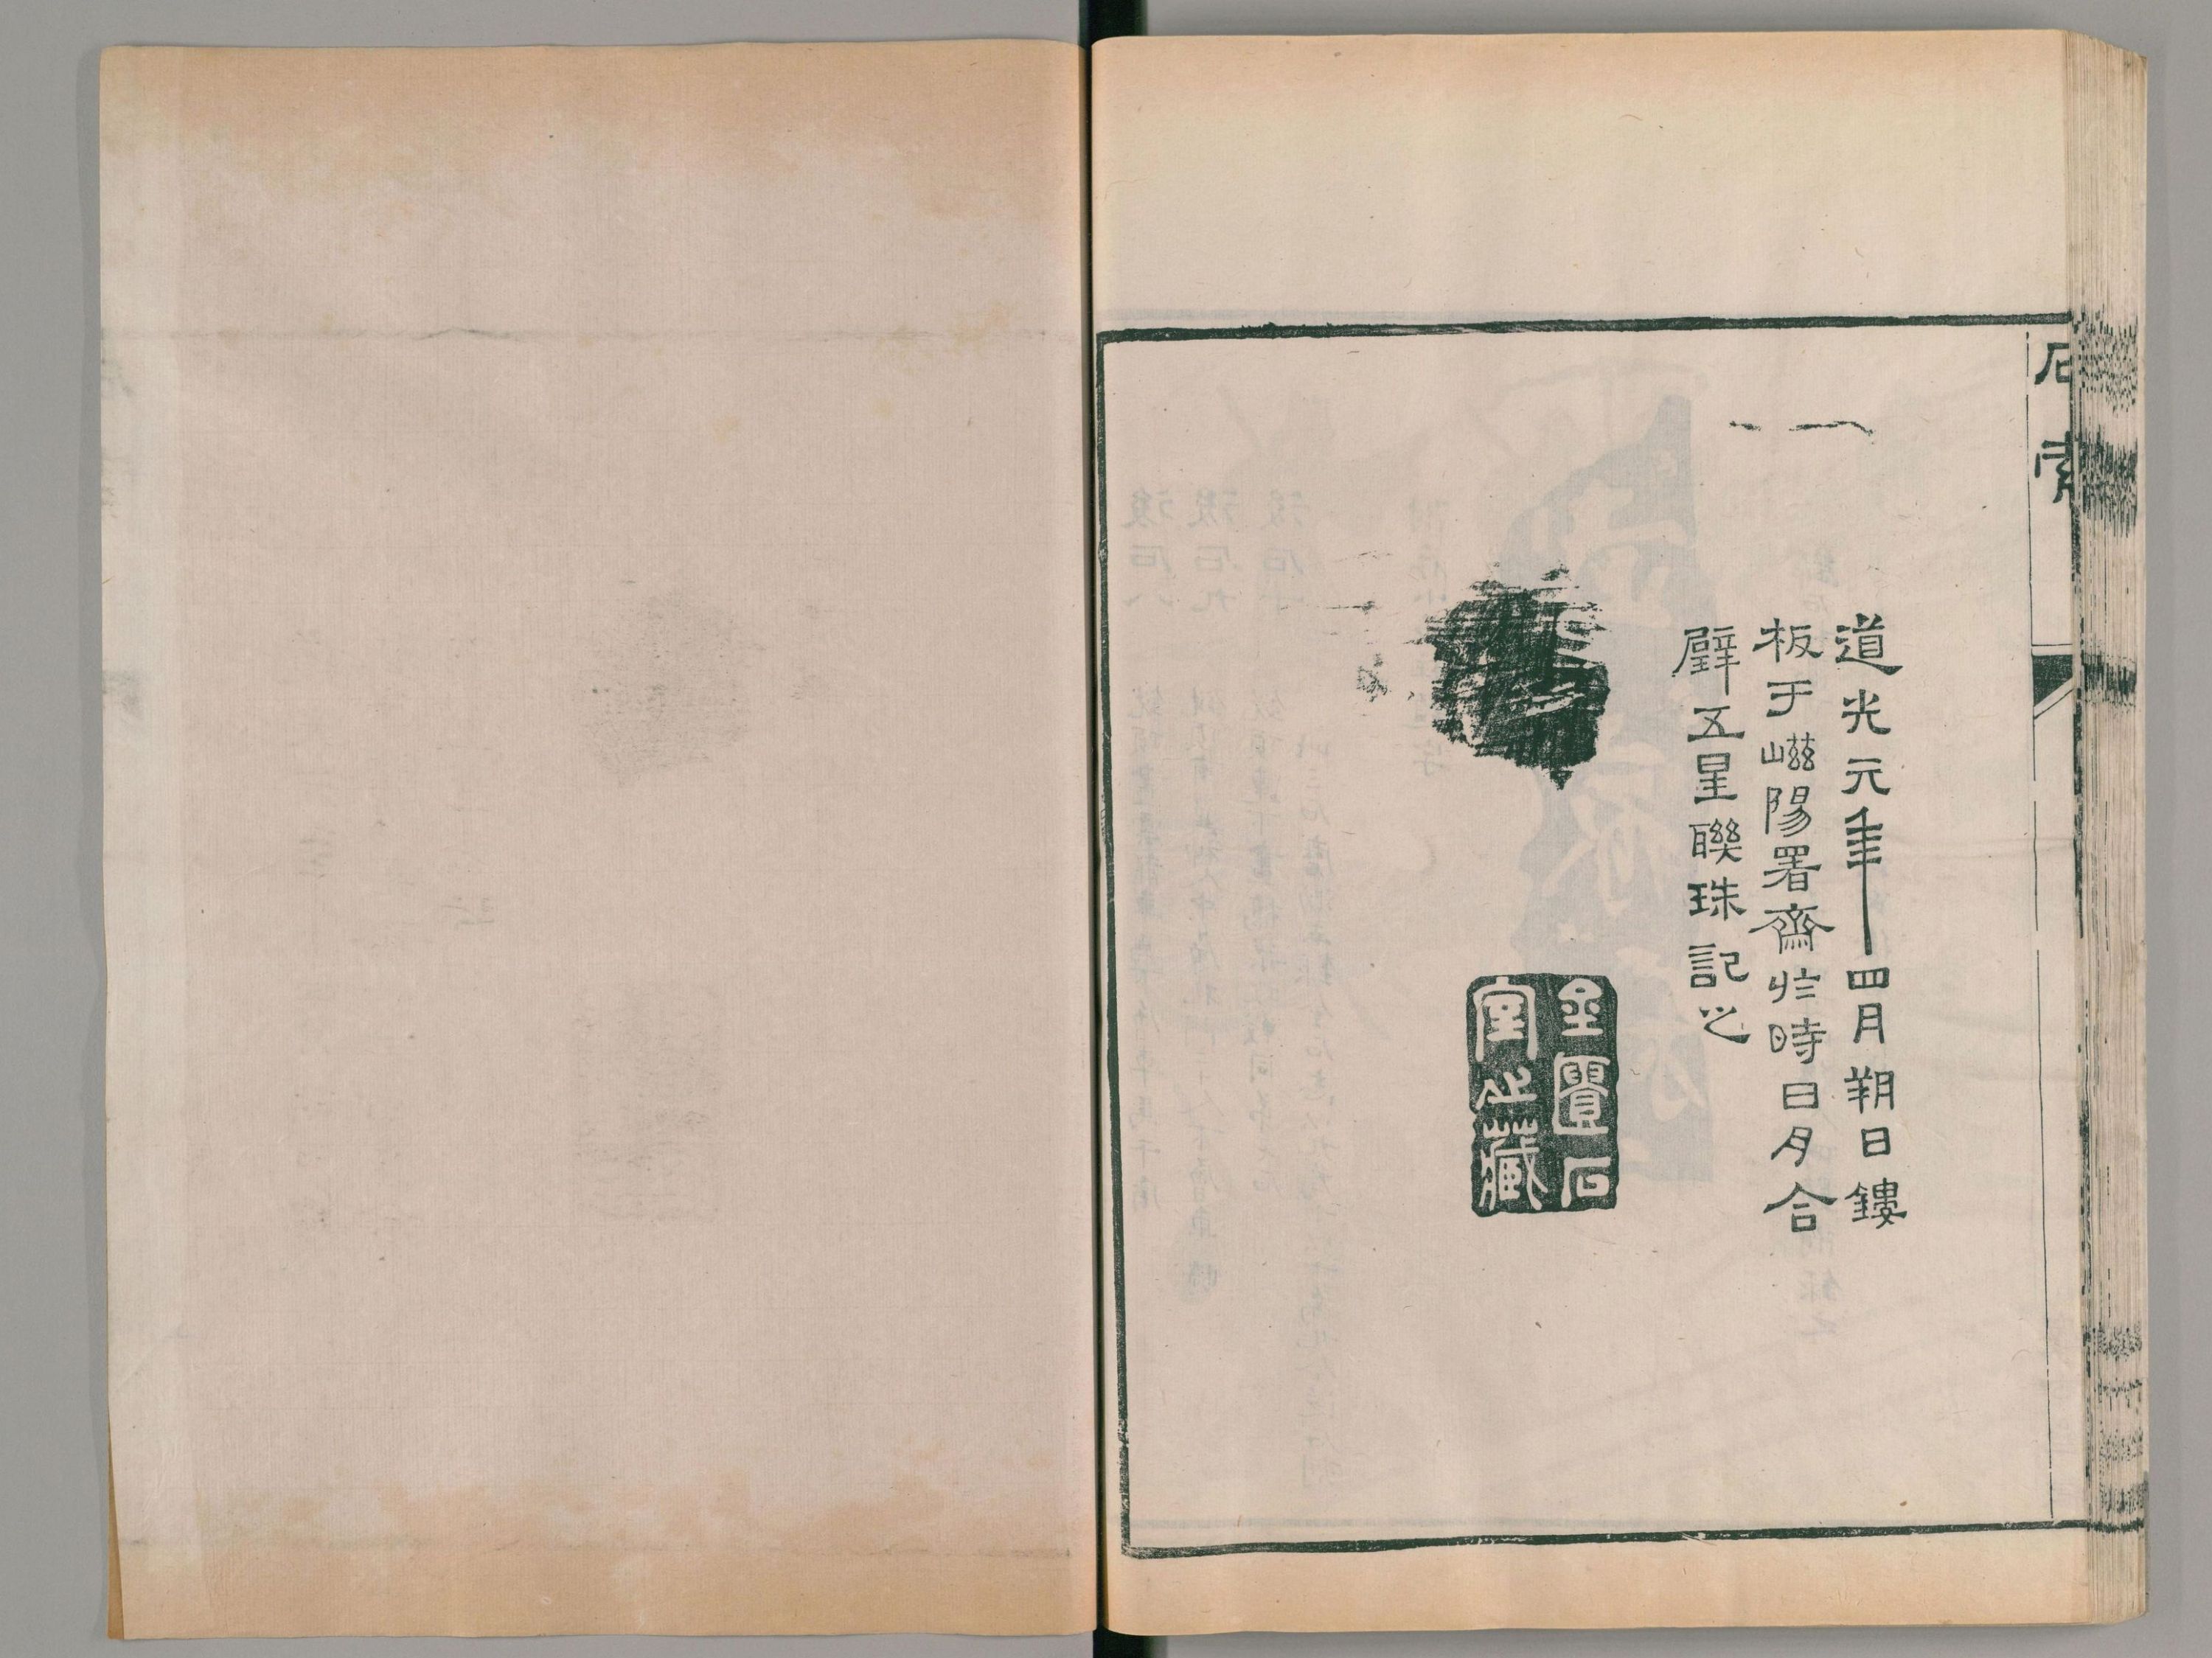 石索
道光元年四月朔日鏤
板于嵫陽署齋於時日月合
璧五星聯珠記之
金匱石
室之藏